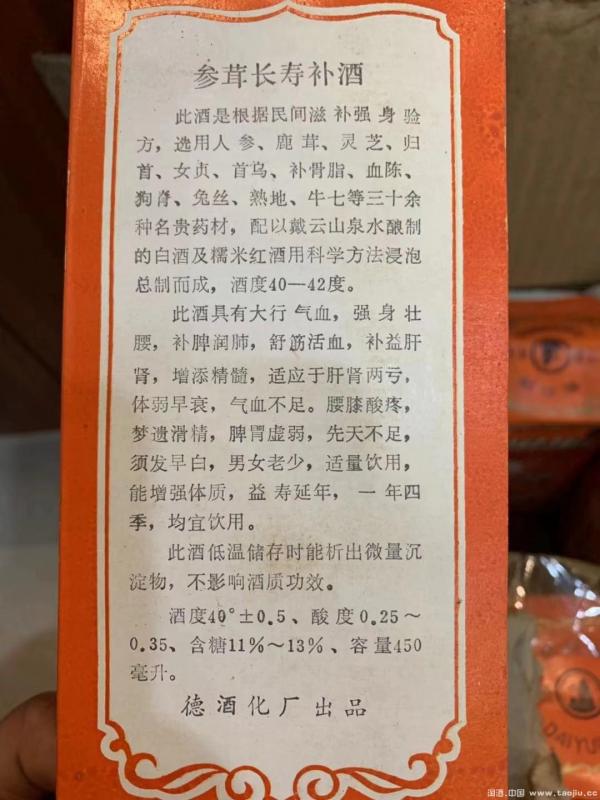 参茸长寿补酒
此酒是根据民间滋补强身验
方，选用人参、鹿茸、灵芝、归
首、女贞、首乌、补骨脂、血陈、
狗脊、兔丝、熟地、牛七等三十余
种名贵药材，配以戴云山泉水酿制
的白酒及糯米红酒用科学方法浸泡
总制而成，酒度40—42度。
此酒具有大行气血，强身壮
腰，补脾润肺，舒筋活血，补益肝
肾，增添精髓，适应于肝肾两亏，
体弱早衰，气血不足。腰膝酸疼，
梦遗滑精，脾胃虚弱，先天不足，
须发早白，男女老少，适量饮用，
能增强体质，益寿延年，一年四
季，均宜饮用。
此酒低温储存时能析出微量沉
淀物，不影响酒质功效。
酒度40°±0.5、酸度0.25～
0.35、含糖11%～13%、容量450
毫升。
德酒化厂出品
DAIYU
国酒.中国 www.taojiu.cc